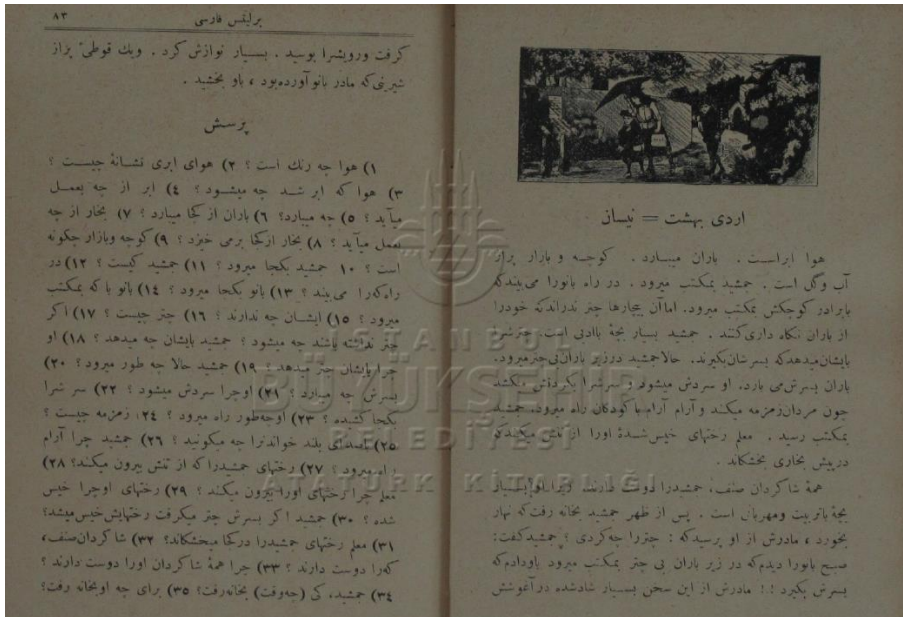 اردی بهشت = نیسان
هوا ابراست . باران میبارد . کوچه و بازار پراز
آب وگل است . جمشید بمکتب میرود . در راه بانورا می‌بیندکه
بابرادر کوچکش بمکتب میرود. اماآن بیچارها چتر ندراندکه خودرا
از باران نگاه داری‌کنند . جمشید بسیار بچهٔ باادبی است. چترشرا
بایشان‌میدهدکه بسرشان‌بگیرند. حالاجمشید درزیر باران‌بی‌چترمیرود.
باران بسرش‌می بارد. او سردش میشود و سرشرا بگرداش میکشد
چون مردان‌زمزمه میکند و آرام آرام با کودکان راه میرود. جمشید
بمکتب رسید . معلم رختهای خیس‌شدهٔ اورا از تنش میکندکه
درپیش بخاری بخشکاند .
همهٔ شاکردان صنف، جمشیدرا دوست دارند. زیرا او بسیار
بچهٔ باتربیت ومهربان است . پس از ظهر جمشید بخانه رفت‌که نهار
بخورد ، مادرش از او پرسیدکه : چتررا چه‌کردی ؟ جمشیدکفت:
صبح بانورا دیدم‌که در زیر باران بی چتر بمکتب میرود باودادم‌که
بسرش بگیرد !.! مادرش از این سخن بسیار شادشده درآغوشش
برلیقس فارسی ٨٣
گرفت ورویشرا بوسید . بسیار نوازش کرد . ویك قوطی پراز
شیرینی‌که مادر بانو آورده‌بود ، باو بخشید .
پرسش
١) هوا چه رنك است ؟ ٢) هوای ابری نشانهٔ چیست ؟
٣) هوا که ابر شد چه میشود ؟ ٤) ابر از چه بعمل
میآید ؟ ٥) چه میبارد؟ ٦) باران از کجا میبارد ؟ ٧) بخار از چه
بعمل میآید ؟ ٨) بخار ازکجا برمی خیزد ؟ ٩) کوچه وبازار چگونه
است ؟ ١٠ جمشید بکجا میرود ؟ ١١) جمشید کیست ؟ ١٢) در
راه‌که‌را می‌بیند ؟ ١٣) بانو بکجا میرود ؟ ١٤) بانو با که بمکتب
میرود ؟ ١٥) ایشان چه ندارند ؟ ١٦) چتر چیست ؟ ١٧) اکر
چتر نداشته باشند چه میشود ؟ جمشید بایشان چه میدهد ؟ ١٨) او
چرا بایشان چتر میدهد ؟ ١٩) جمشید حالا چه طور میرود ؟ ٢٠)
بسرش چه میبارد ؟ ٢١) اوچرا سردش میشود ؟ ٢٢) سر شرا
بکجا کشیده ؟ ٢٣) اوچه‌طور راه میرود ؟ ٢٤، زمزمه چیست ؟
٢٥) باصدای بلند خواندنرا چه میکونید ؟ ٢٦) جمشید چرا آرام
راه میرود ؟ ٢٧) رختهای جمشیدرا که از تنش بیرون میکند؟ ٢٨)
معلم چرا رختهای اورا بیرون میکند ؟ ٢٩) رختهای اوچرا خیس
شده ؟ ٣٠) جمشید اکر بسرش چتر میکرفت رختهایش‌خیس‌میشد؟
٣١) معلم رختهای جمشیدرا درکجا میخشکاند؟ ٣٢) شاکردان‌صنف،
که‌را دوست دارند ؟ ٣٣) چرا همهٔ شاکردان اورا دوست دارند ؟
٣٤) جمشید، کی (چه‌وقت) بخانه‌رفت؟ ٣٥) برای چه اوبخانه رفت؟
İSTANBUL
BÜYÜKŞEHİR
BELEDİYESİ
ATATÜRK KİTAPLIĞI